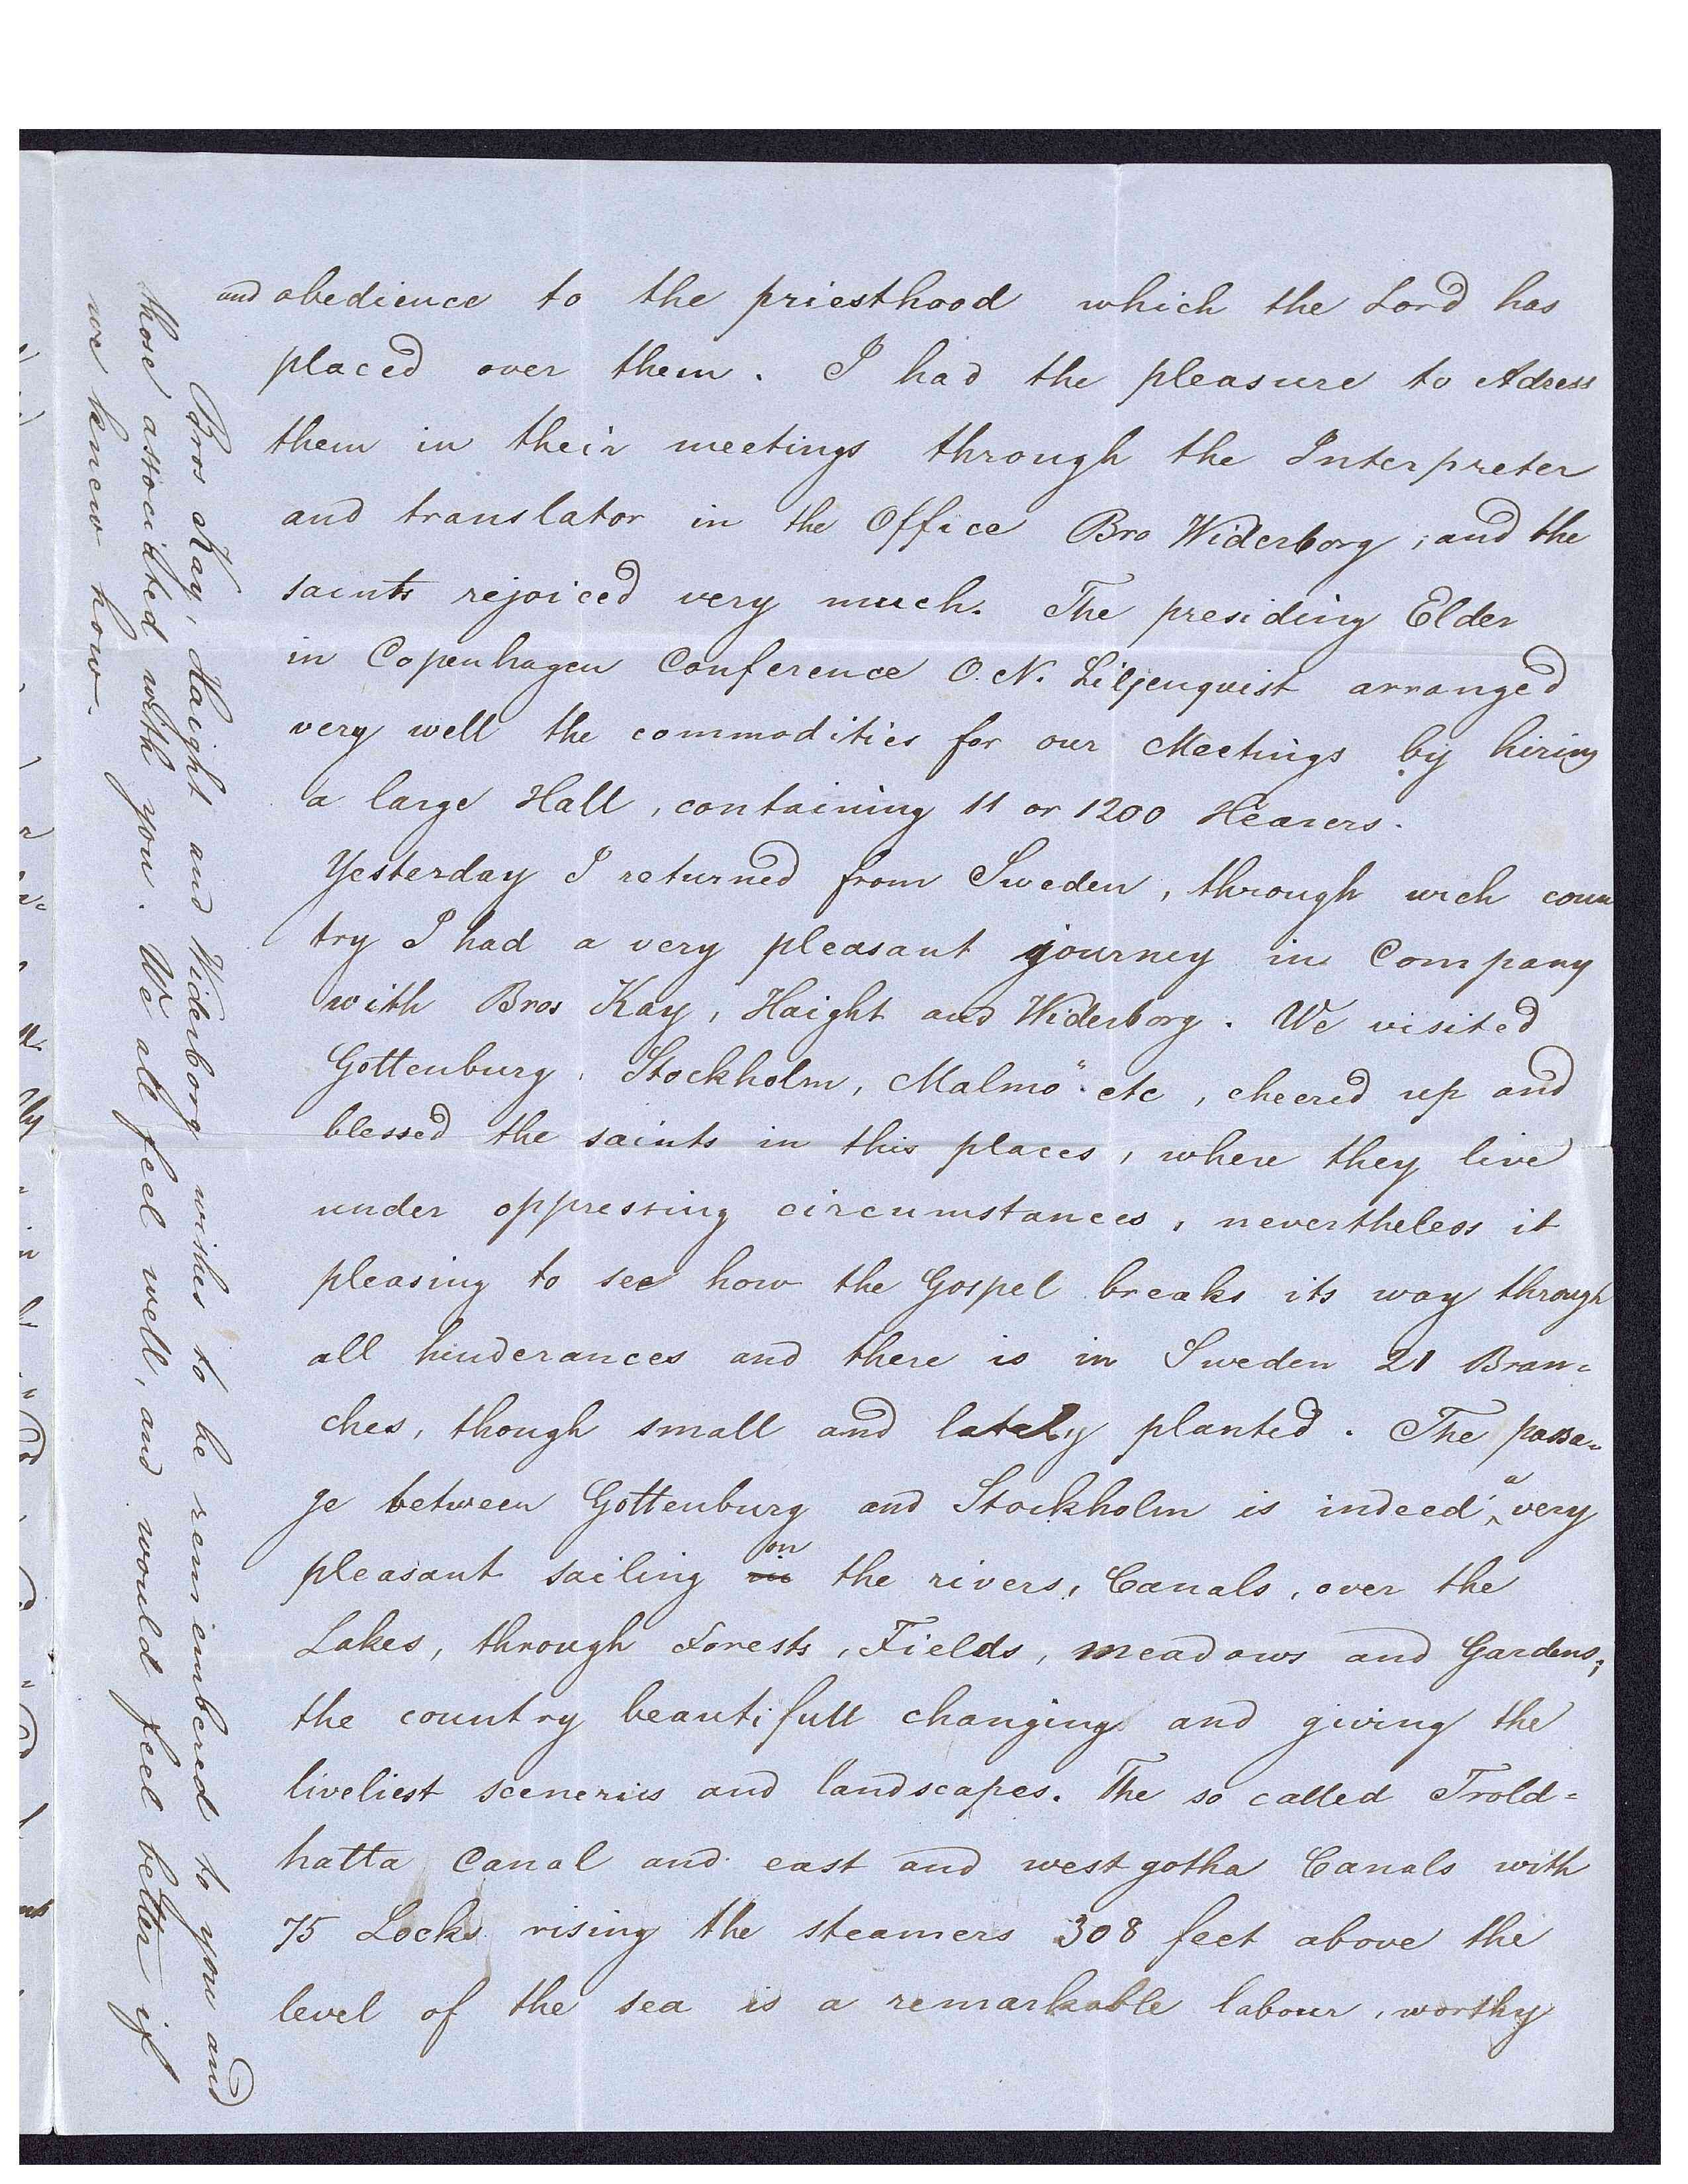 and obedience to the priesthood which the Lord has
placed over them. I had the pleasure to Adress
them in their meetings through the Interpreter
and translator in the Office Bro Widerborg, and the
saints rejoiced very much. The presiding Elder
in Copenhagen Conference O. N. Liljenquist arranged
very well the commodities for our Meetings by hiring
a large Hall, containing 11 or 1200 Hearers.
Yesterday I returned from Sweden, through wich coun
try I had a very pleasant journey in Company
with Bros Kay, Haight and Widerborg. We visited
Gottenburg, Stockholm, Malmö etc, cheered up and
blessed the saints in this places, where they live
under oppressing circumstances, nevertheless it
pleasing to see how the Gospel breaks its way through
all hinderances and there is in Sweden 21 Bran=
ches, though small and lately planted. The passa=
ge between Gottenburg and Stockholm is indeed a very
pleasant sailing in on the rivers, Canals, over the
Lakes, through Forests, Fields, meadows and Gardens;
the country beautifull changing and giving the
liveliest sceneries and landscapes. The so called Trold=
hatta Canal and east and west gotha Canals with
75 Locks rising the steamers 308 feet above the
level of the sea is a remarkable labour, worthy
Bros Kay, Haight and Widerborg wishes to be remembered to you and
those associated with you. We all feel well, and would feel better if
we knew how.